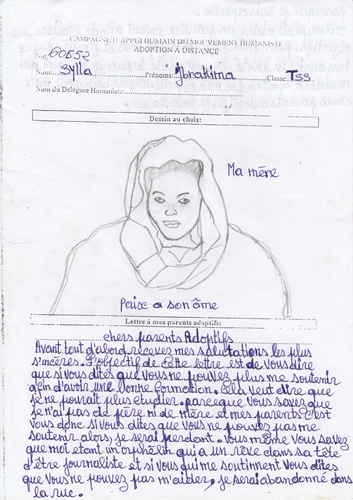 CAMPAGNE D'APPUI HUMAIN DU MOUVEMENT HUMANISTE
ADOPTION À DISTANCE
No: 60652
Nom: Sylla Prénoms: Ibrahima Classe: TSS
Nom du Délégué Humaniste:
Dessin au choix:
Ma mère
Paise a son âme
Lettre à mes parents adoptifs:
chers parents Adoptifs
Avant tout d'abord recevez mes salutations les plus
sincères. l'objectif de cette lettre est de vous dire
que si vous dites que vous ne pouvez plus me soutenir
afin d'avoir une bonne formation. Cela veut dire que
je ne pourrait plus étudier. parceque vous savez que
je n'ai pas de père ni de mère et mes parents c'est
vous donc si vous dites que vous ne pouvez pas me
soutenir alors, je serai perdant. vous même vous savez
que moi étant un orphélin qui a un rêve dans sa tête
d'être journaliste et si vous qui me soutinnent vous dites
que vous ne pouvez pas m'aider, je serai abandonné dans
la rue.